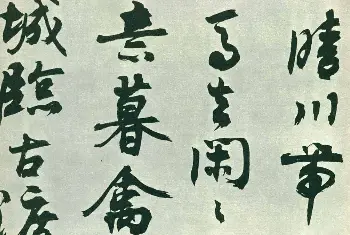 晴川帶
馬去閑〻
意暮禽
城臨古渡